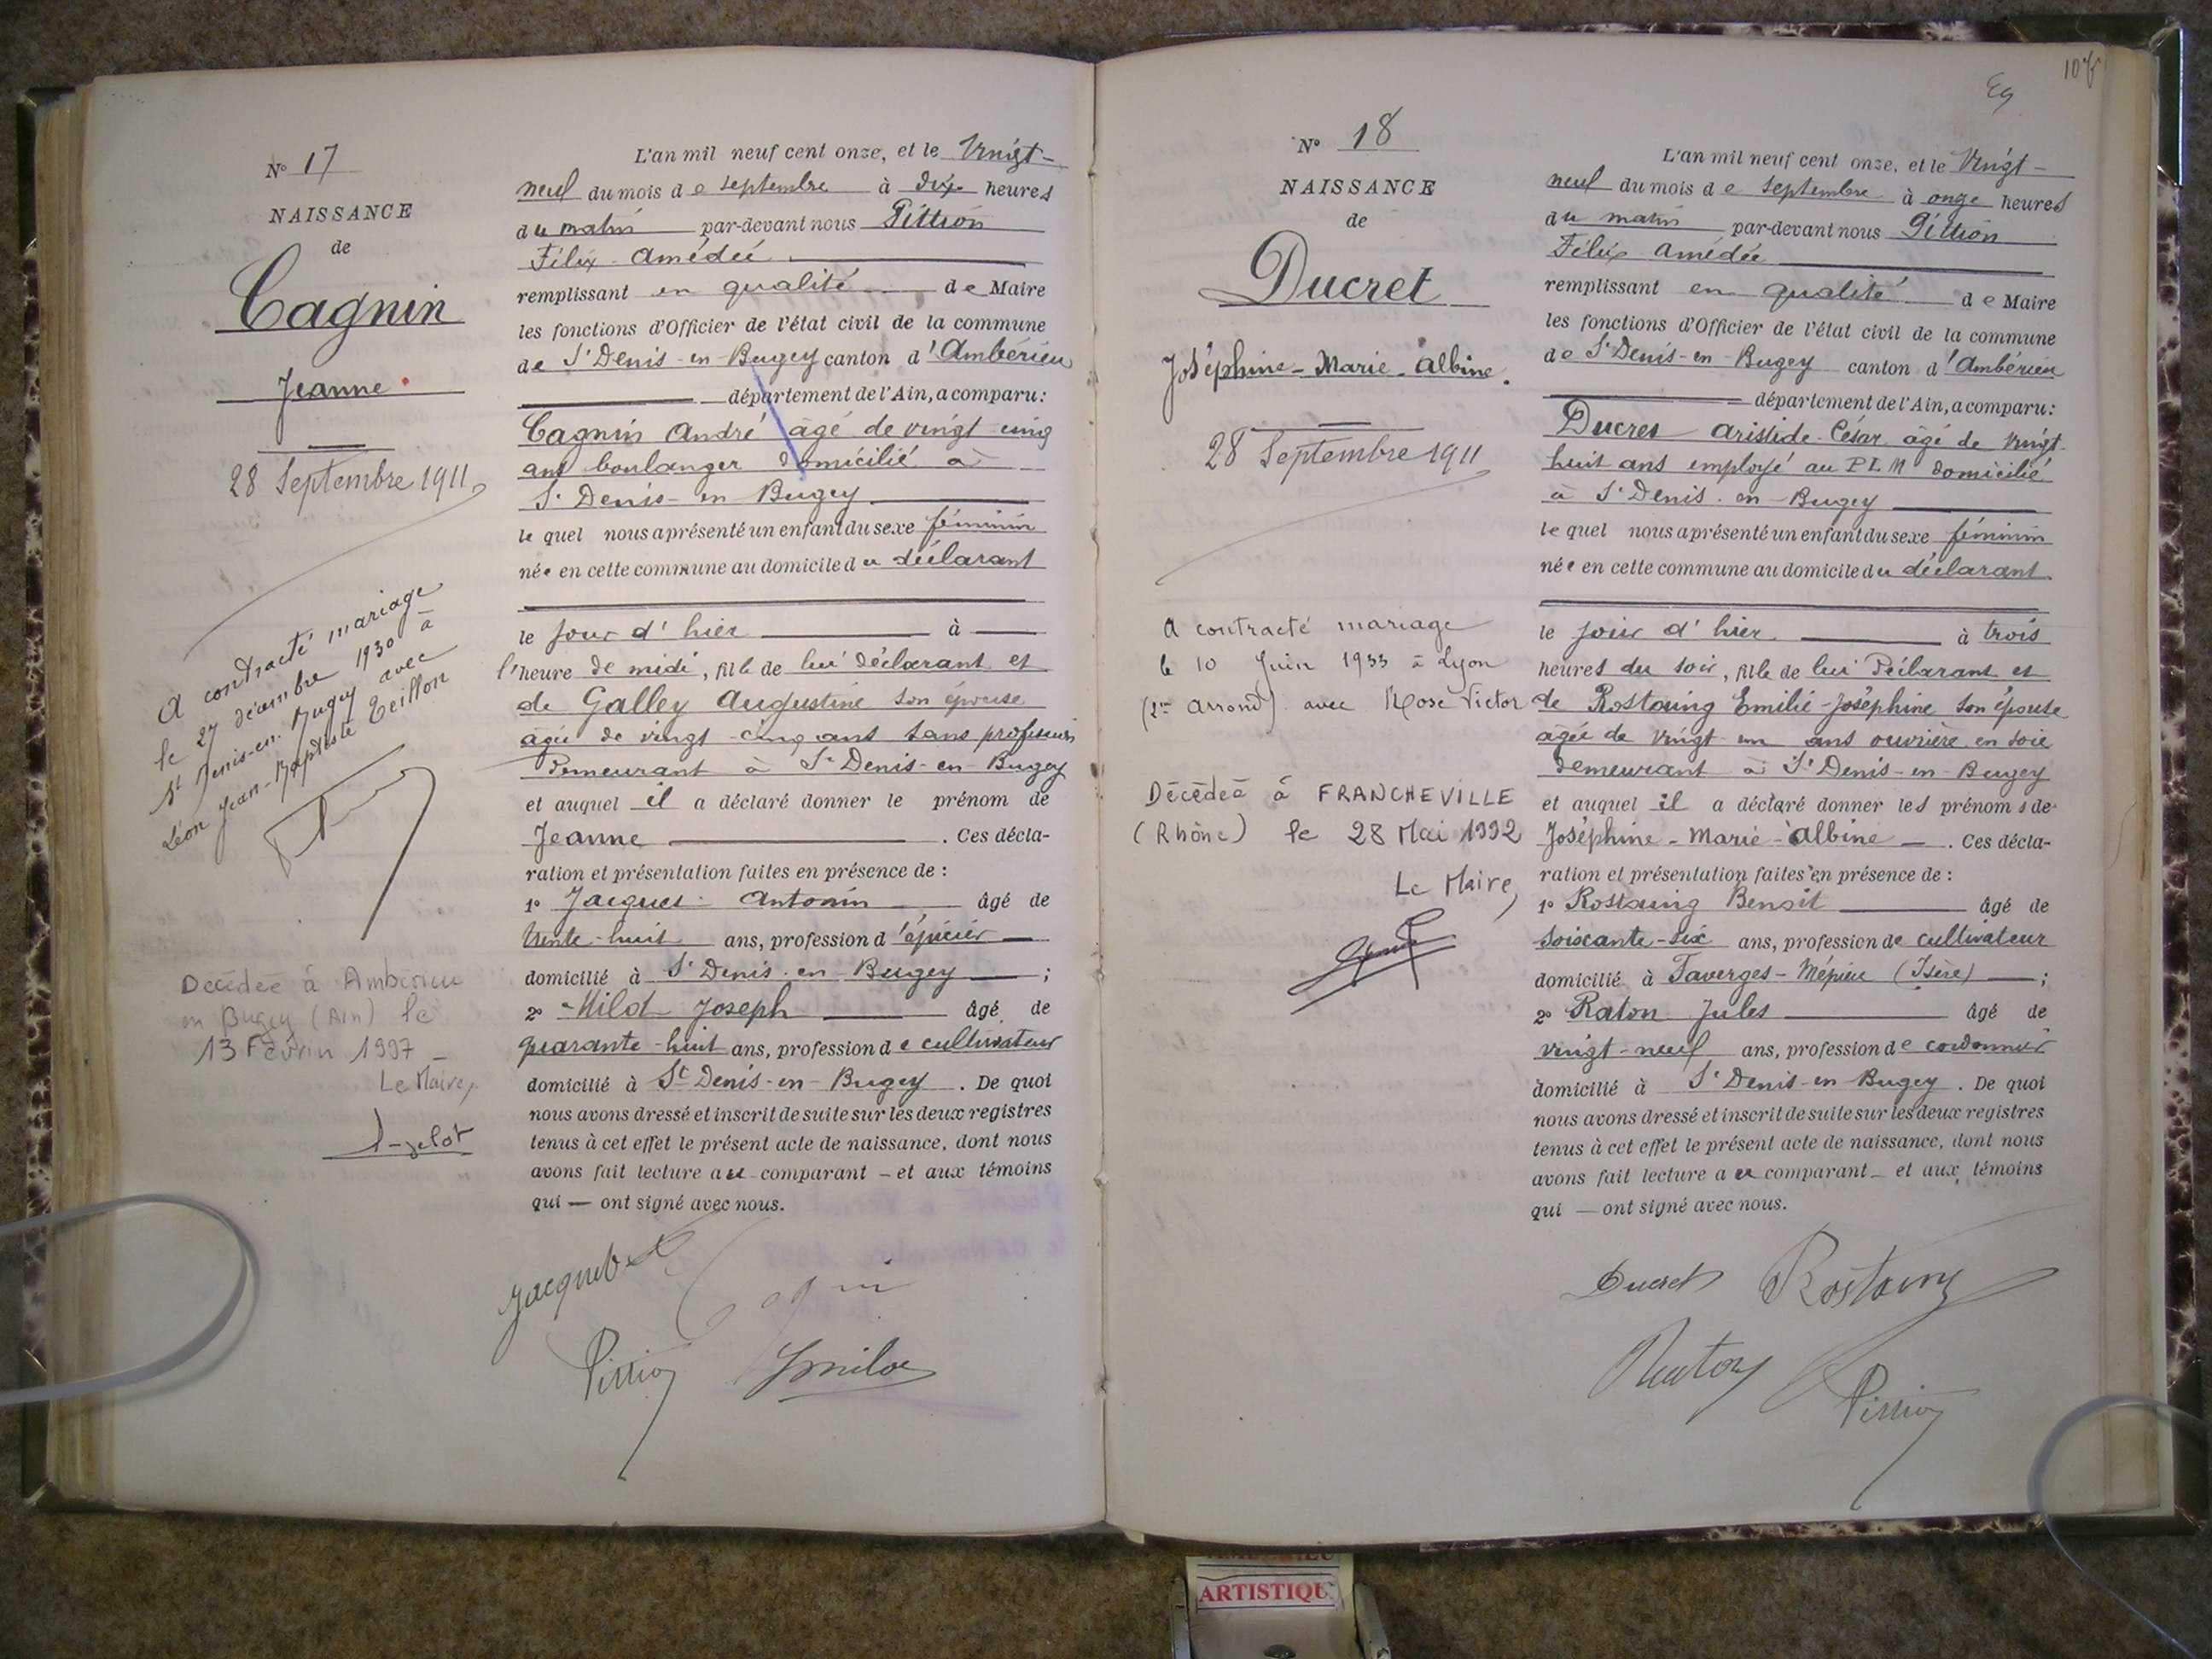 N° 17
NAISSANCE
de
Cagnin
Jeanne
28 Septembre 1911
A contracté mariage
le 27 décembre 1930 à
St Denis-en-Bugey avec
Léon Jean-Baptiste Teillon
Décédée à Ambérieu
en Bugey (Ain) le
13 Février 1997 –
Le Maire,
L'an mil neuf cent onze, et le Vingt-
neuf du mois de septembre à dix heures
du matin par-devant nous Pittion
Félix Amédée
remplissant en qualité de Maire
les fonctions d'Officier de l'état civil de la commune
de St Denis-en-Bugey canton d'Ambérieu
département de l'Ain, a comparu:
Cagnin André âgé de vingt cinq
ans boulanger domicilié à
St Denis-en-Bugey
lequel nous a présenté un enfant du sexe féminin
née en cette commune au domicile du déclarant
le jour d'hier à
l'heure de midi, fille de lui déclarant et
de Galley Augustine son épouse
agée de vingt-cinq ans sans profession
demeurant à St Denis-en-Bugey
et auquel il a déclaré donner le prénom de
Jeanne . Ces décla-
ration et présentation faites en présence de :
1° Jacques Antonin âgé de
trente-huit ans, profession d'épicier
domicilié à St Denis-en-Bugey ;
2° Milot Joseph âgé de
quarante-huit ans, profession de cultivateur
domicilié à St Denis-en-Bugey . De quoi
nous avons dressé et inscrit de suite sur les deux registres
tenus à cet effet le présent acte de naissance, dont nous
avons fait lecture au comparant – et aux témoins
qui — ont signé avec nous.
N° 18
NAISSANCE
de
Ducret
Joséphine-Marie-Albine.
28 Septembre 1911
A contracté mariage
le 10 Juin 1933 à Lyon
(2me arrond) avec Rose Victor
Décédée à FRANCHEVILLE
(Rhône) le 28 Mai 1992
Le Maire,
L'an mil neuf cent onze, et le Vingt-
neuf du mois de septembre à onze heures
du matin par-devant nous Pittion
Félix Amédée
remplissant en qualité de Maire
les fonctions d'Officier de l'état civil de la commune
de St Denis-en-Bugey canton d'Ambérieu
département de l'Ain, a comparu:
Ducret Aristide-César âgé de vingt-
huit ans employé au PLM domicilié
à St Denis-en-Bugey
lequel nous a présenté un enfant du sexe féminin
née en cette commune au domicile du déclarant
le jour d'hier à trois
heures du soir, fille de lui Déclarant et
de Rostaing Emilie-Joséphine son épouse
agée de vingt un ans ouvrière en soie
demeurant à St Denis-en-Bugey
et auquel il a déclaré donner les prénoms de
Joséphine-Marie-Albine — . Ces décla-
ration et présentation faites en présence de :
1° Rostaing Benoit âgé de
soixante-six ans, profession de cultivateur
domicilié à Faverges-Mépieu (Isère) ;
2° Raton Jules âgé de
vingt-neuf ans, profession de cordonnier
domicilié à St Denis-en-Bugey . De quoi
nous avons dressé et inscrit de suite sur les deux registres
tenus à cet effet le présent acte de naissance, dont nous
avons fait lecture au comparant – et aux témoins
qui — ont signé avec nous.
Ducret Rostaing
Raton Pittion
ARTISTIQU